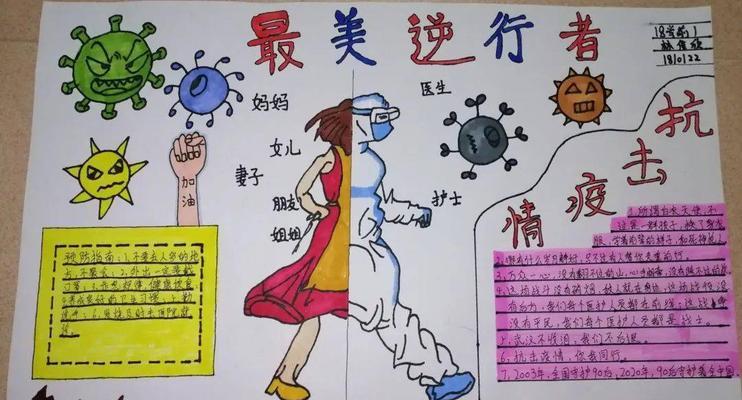 最美逆行者
18学前1
1810122
妈妈
医生
女儿
妻子
加油
朋友
护士
姐姐
抗击疫情
预防指南:1.不要去人多的地
方,不聚会;2.外出一定要戴
口罩;3.作息规律,健康饮食
4.养成良好的卫生习惯,5.勤
通风;6.发烧及时去医院就
诊
1.所谓白衣天使,不
过是一群孩子,换了身衣
服,学着前辈的样子,和死神抢人
2.哪有什么岁月静好,只不过有人替你负重前行。
3.万众一心,没有翻不过的山,心手相牵,没有跨不过的坎
4.这场战斗没有硝烟,敌人就在身边,这场战役没
有后方,我们每个医护人员都在前线;这战争
没有平民,我们每个医护人员都是战士。
5.武汉不 我们不后退。
6.抗击疫情,你我同行。
7.2003年,全国守护90后,2020年,90后守护着全中国。